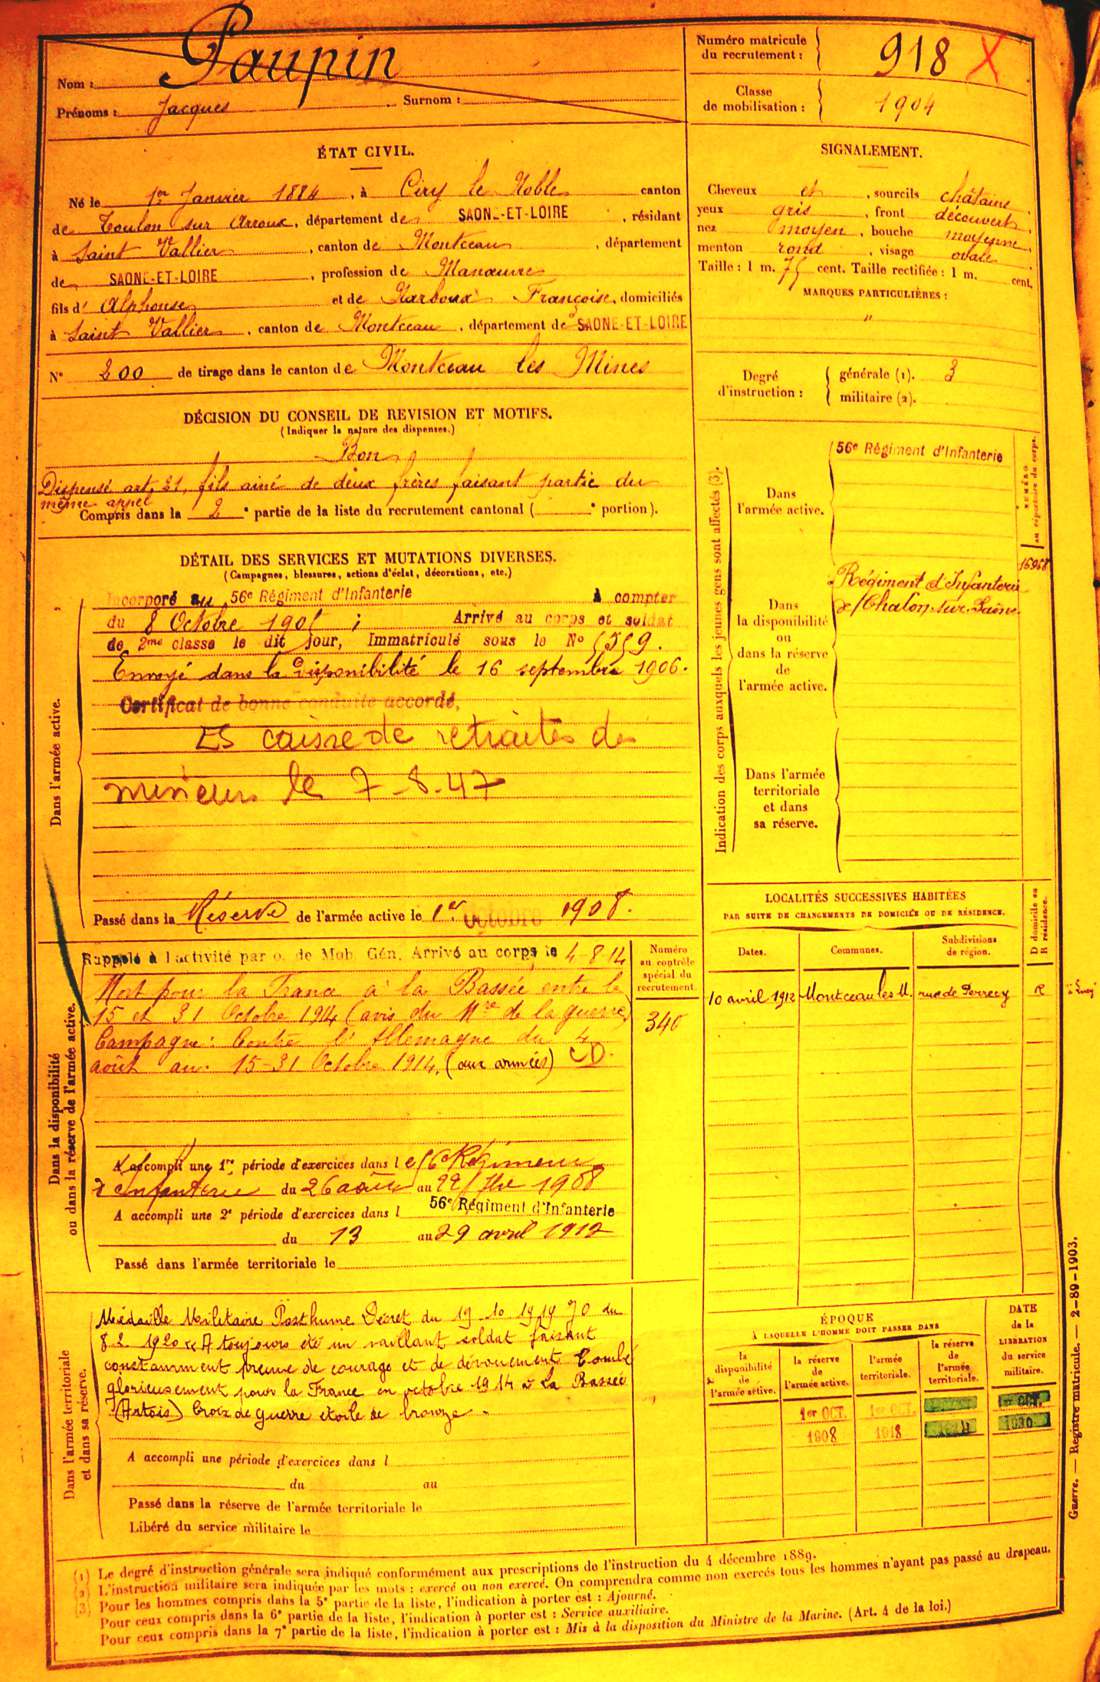 Nom : Paupin
Prénoms : Jacques Surnom :
Numéro matricule du recrutement : 918 X
Classe de mobilisation : 1904
ÉTAT CIVIL.
Né le 1er Janvier 1884, à Ciry le Noble canton
de Toulon sur Arroux, département de SAONE-ET-LOIRE, résidant
à Saint Vallier, canton de Montceau, département
de SAONE-ET-LOIRE, profession de Manœuvre
fils d' Alphonse et de Françoise, domiciliés
à Saint Vallier, canton de Montceau, département de SAONE-ET-LOIRE
N° 200 de tirage dans le canton de Montceau les Mines
SIGNALEMENT.
Cheveux et, sourcils châtains
yeux gris, front découvert
nez moyen, bouche moyenne
menton rond, visage ovale
Taille : 1 m. 75 cent. Taille rectifiée : 1 m. cent.
MARQUES PARTICULIÈRES :
"
Degré d'instruction : générale (1). 3
militaire (2).
DÉCISION DU CONSEIL DE REVISION ET MOTIFS.
(Indiquer la nature des dispenses.)
Bon
Dispensé art. 21, fils ainé de deux frères faisant partie du
même appel
Compris dans la 2e partie de la liste du recrutement cantonal ( e portion).
DÉTAIL DES SERVICES ET MUTATIONS DIVERSES.
(Campagnes, blessures, actions d'éclat, décorations, etc.)
Dans l'armée active.
Incorporé au 56e Régiment d'Infanterie à compter
du 8 Octobre 1905 ; Arrivé au corps et soldat
de 2me classe le dit jour, Immatriculé sous le No 5559.
Envoyé dans la Disponibilité le 16 septembre 1906.
Certificat de bonne conduite accordé,
ES caisse de retraites des
mineurs le 7-8-47
Passé dans la Réserve de l'armée active le 1er Octobre 1908.
Indication des corps auxquels les jeunes gens sont affectés (3).
NUMÉRO au répertoire du corps.
Dans l'armée active.
56e Régiment d'Infanterie
Dans la disponibilité ou dans la réserve de l'armée active.
Régiment d'Infanterie
d/Chalon-sur-Saône
Dans l'armée territoriale et dans sa réserve.
Dans la disponibilité ou dans la réserve de l'armée active.
Rappelé à l'activité par o. de Mob. Gén. Arrivé au corps le 4-8-14
Mort pour la France à la Bassée entre le
15 et 31 Octobre 1914 (avis du Mre de la guerre)
Campagne : Contre l'Allemagne du 4
août au 15-31 Octobre 1914. (aux armées) CD.
Numéro au contrôle spécial du recrutement.
340
A accompli une 1re période d'exercices dans le 56e Régiment
d'Infanterie du 26 août au 22 7bre 1908
A accompli une 2e période d'exercices dans l 56e Régiment d'Infanterie
du 13 au 29 avril 1912
Passé dans l'armée territoriale le
LOCALITÉS SUCCESSIVES HABITÉES
PAR SUITE DE CHANGEMENTS DE DOMICILE OU DE RÉSIDENCE.
Dates. Communes. Subdivisions de région. D domicile ou R résidence.
10 avril 1912 Montceau les M. rue de Perrecy R
Dans l'armée territoriale et dans sa réserve.
Médaille Militaire Posthume Décret du 19 10 1919 JO du
8.2 1920 « A toujours été un vaillant soldat faisant
constamment preuve de courage et de dévouement. Tombé
glorieusement pour la France en octobre 1914 à La Bassée
(Artois) Croix de guerre étoile de bronze.
A accompli une période d'exercices dans l
du au
Passé dans la réserve de l'armée territoriale le
Libéré du service militaire le
ÉPOQUE
À LAQUELLE L'HOMME DOIT PASSER DANS
DATE de la LIBÉRATION du service militaire.
la disponibilité de l'armée active. la réserve de l'armée active. l'armée territoriale. la réserve de l'armée territoriale.
1er OCT. 1er OCT. OCT.
1908 1918 1930
Guerre. — Registre matricule. — 2-89-1903.
(1) Le degré d'instruction générale sera indiqué conformément aux prescriptions de l'instruction du 4 décembre 1889.
(2) L'instruction militaire sera indiquée par les mots : exercé ou non exercé. On comprendra comme non exercés tous les hommes n'ayant pas passé au drapeau.
(3) Pour les hommes compris dans la 5e partie de la liste, l'indication à porter est : Ajourné.
Pour ceux compris dans la 6e partie de la liste, l'indication à porter est : Service auxiliaire.
Pour ceux compris dans la 7e partie de la liste, l'indication à porter est : Mis à la disposition du Ministre de la Marine. (Art. 4 de la loi.)